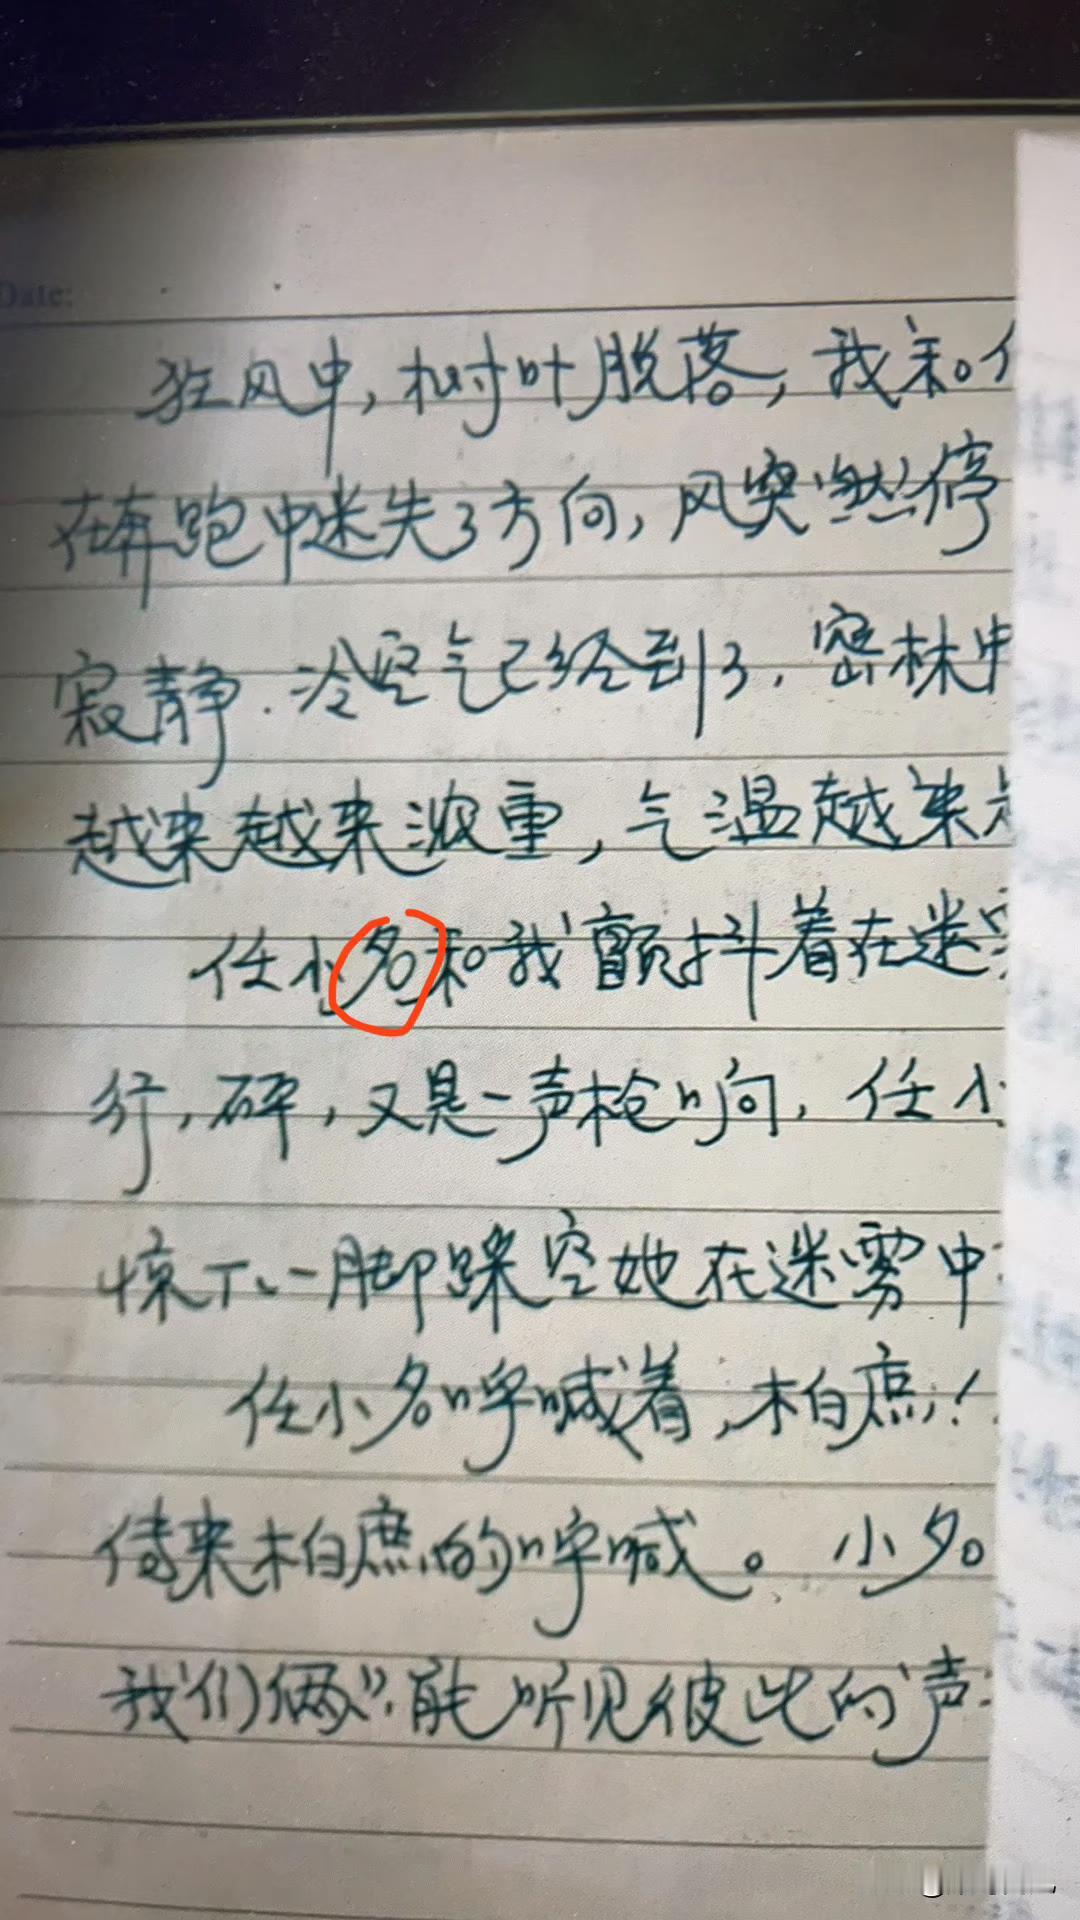 Date:
狂风中，树叶脱落，我和
在奔跑中迷失了方向，风突然停
寂静．冷空气已经到了．密林中
越来越来浓重，气温越来
任小名和我颤抖着在迷
行，砰，又是一声枪响，任小
惊下、一脚踩空她在迷雾中
任小名呼喊着，柏庶！
传来柏庶的呼喊。小名
我们俩只能听见彼此的声